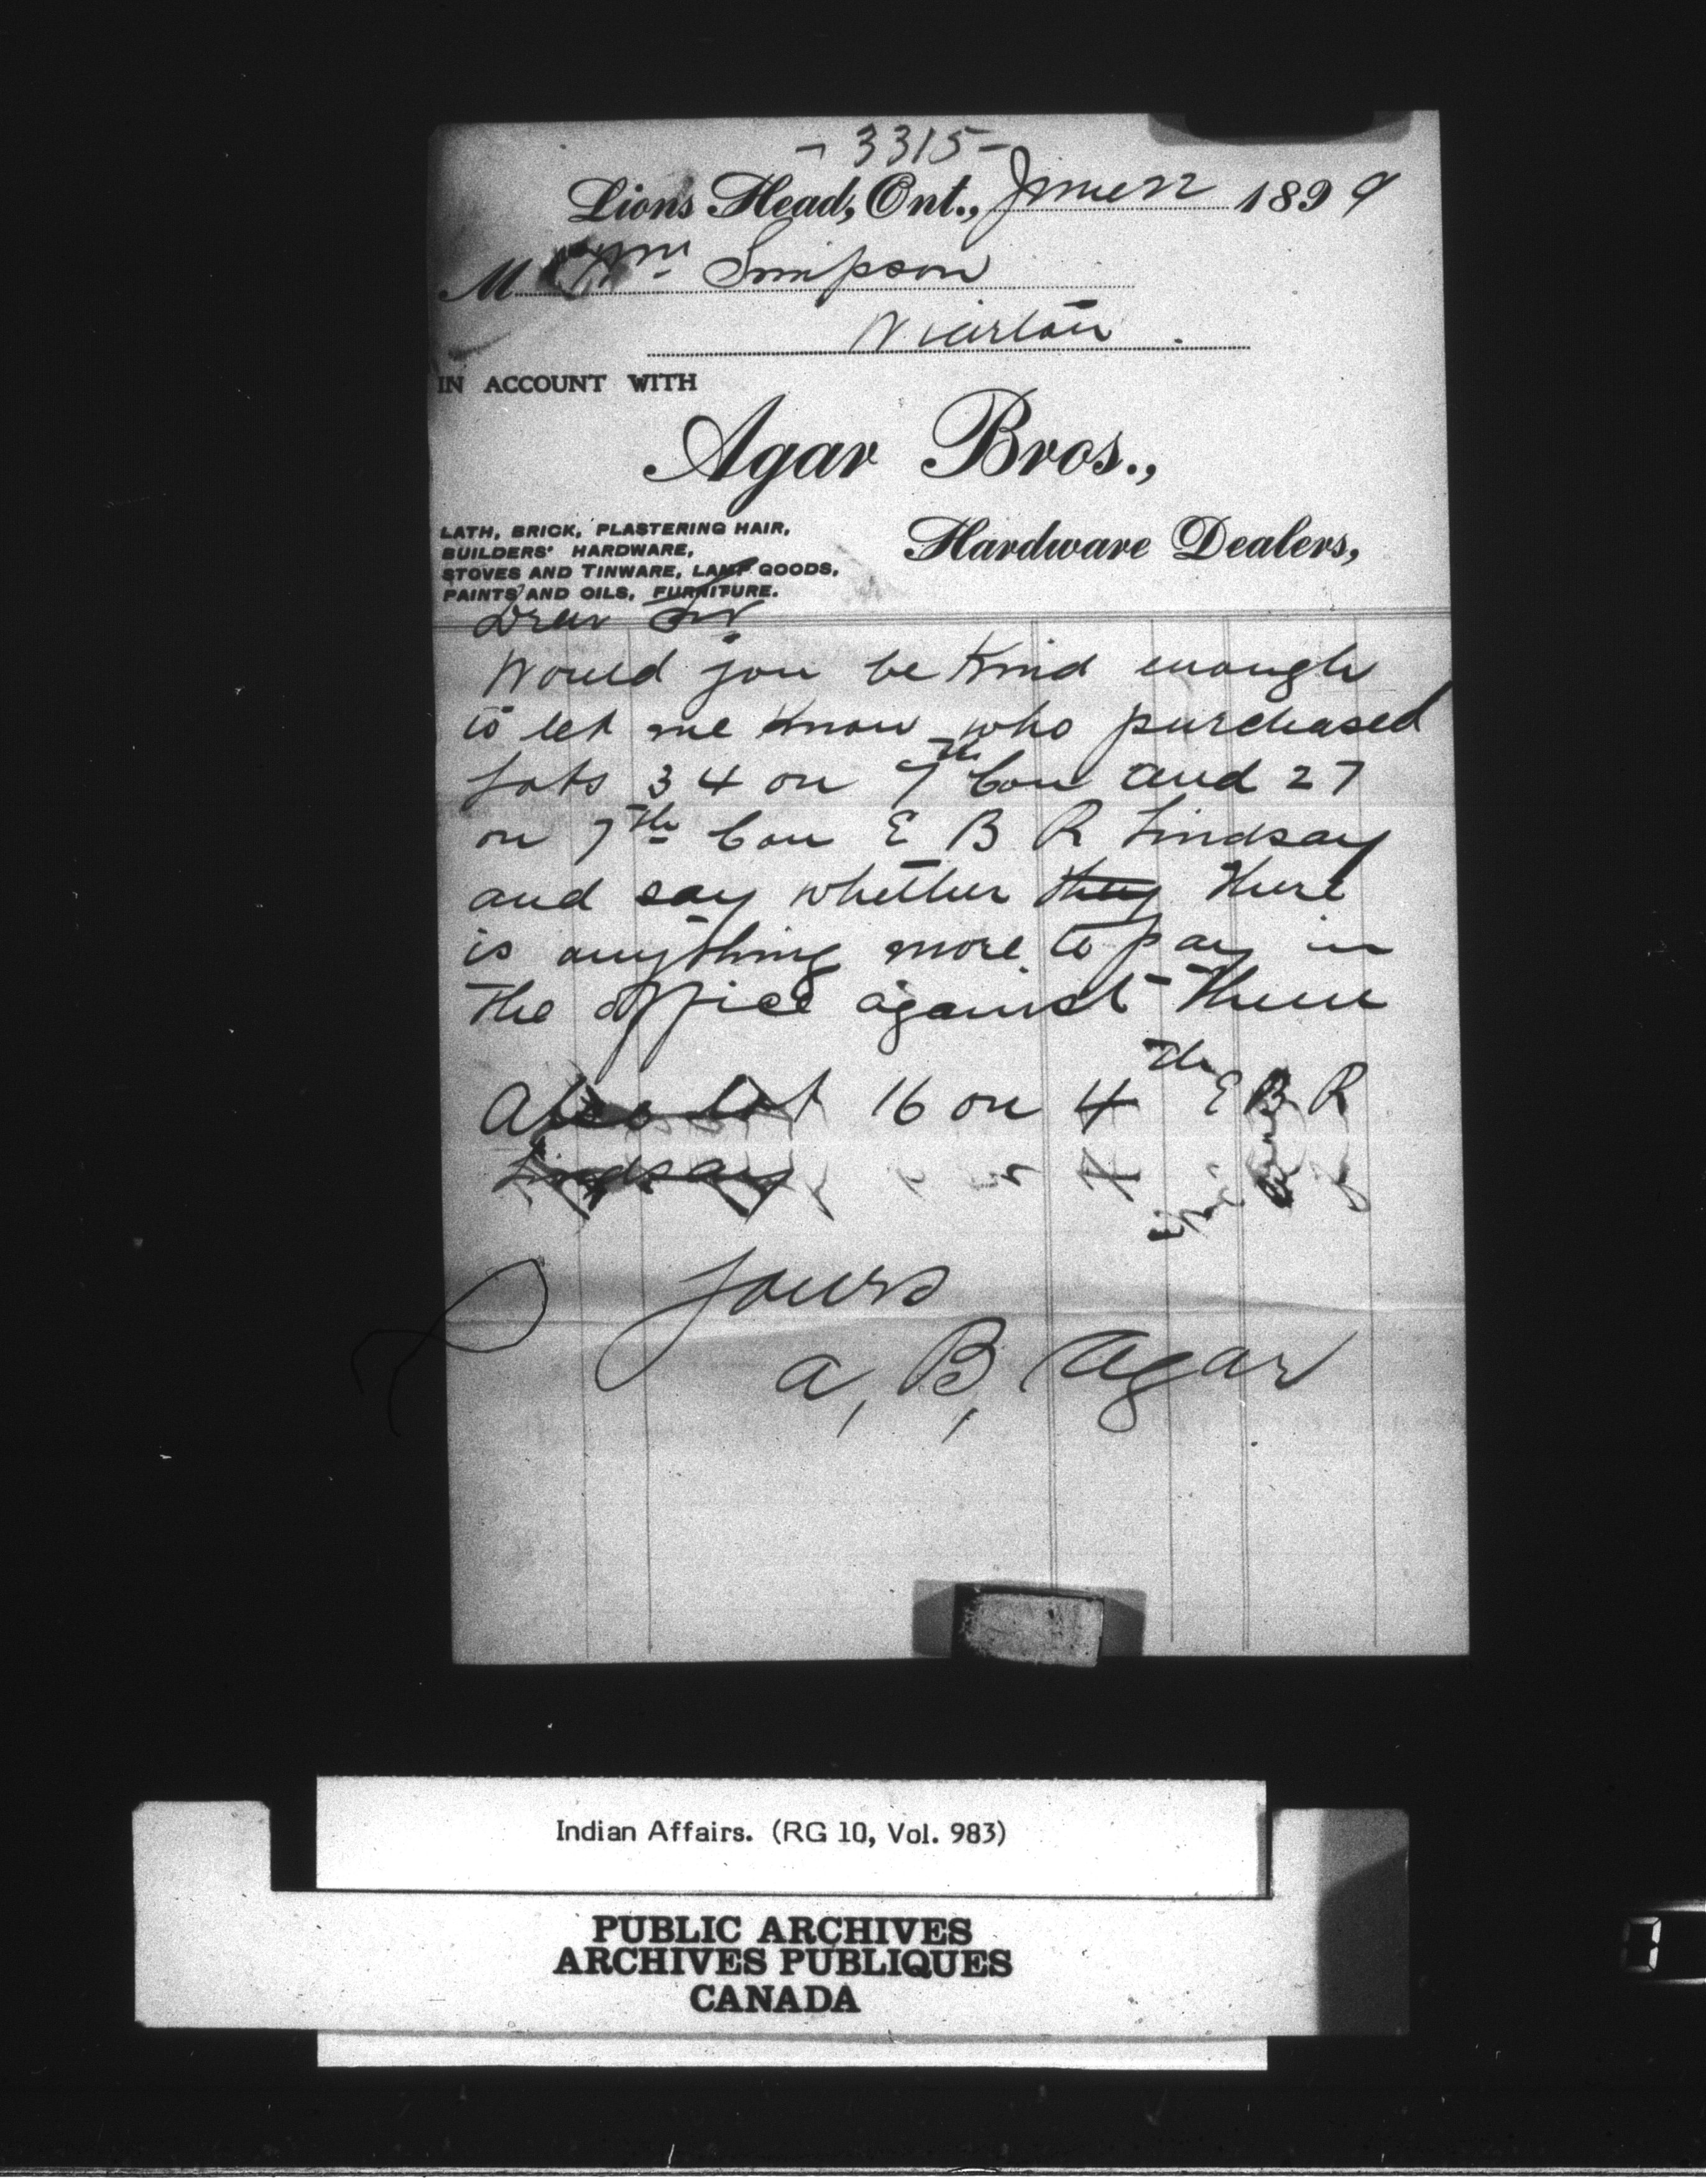 - 3315 -
Lions Head, Ont., June 22 1899
M Wm Simpson
Wiarton.
IN ACCOUNT WITH
Agar Bros.,
Hardware Dealers,
LATH, BRICK, PLASTERING HAIR,
BUILDERS' HARDWARE,
STOVES AND TINWARE, LAMP GOODS,
PAINTS AND OILS, FURNITURE.
Dear Sir
Would you be kind enough
to let me know who purchased
Lots 34 on 7th Con and 27
on 7th Con E B R Lindsay
and say whether they there
is anything more to pay in
the office against them
Also lot 16 on 4th E B R
Lindsay
Yours
A, B, Agar
Indian Affairs. (RG 10, Vol. 983)
PUBLIC ARCHIVES
ARCHIVES PUBLIQUES
CANADA